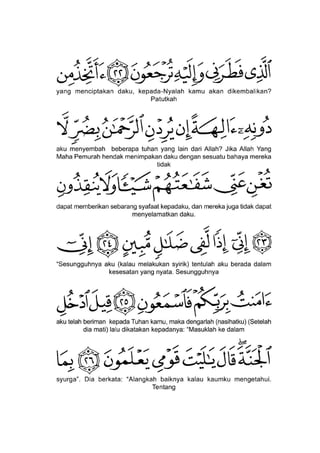 ٱلَّذِى فَطَرَنِى وَإِلَيْهِ تُرْجَعُونَ ﴿٢٢﴾ ءَأَتَّخِذُ مِن
yang menciptakan daku, kepada-Nyalah kamu akan dikembalikan?
Patutkah
دُونِهِۦٓ ءَالِهَةً إِن يُرِدْنِ ٱلرَّحْمَٰنُ بِضُرٍّ لَّا
aku menyembah beberapa tuhan yang lain dari Allah? Jika Allah Yang
Maha Pemurah hendak menimpakan daku dengan sesuatu bahaya mereka
tidak
تُغْنِ عَنِّى شَفَٰعَتُهُمْ شَيْـًٔا وَلَا يُنقِذُونِ
dapat memberikan sebarang syafaat kepadaku, dan mereka juga tidak dapat
menyelamatkan daku.
﴿٢٣﴾ إِنِّىٓ إِذًا لَّفِى ضَلَٰلٍ مُّبِينٍ ﴿٢٤﴾ إِنِّىٓ
"Sesungguhnya aku (kalau melakukan syirik) tentulah aku berada dalam
kesesatan yang nyata. Sesungguhnya
ءَامَنتُ بِرَبِّكُمْ فَٱسْمَعُونِ ﴿٢٥﴾ قِيلَ ٱدْخُلِ
aku telah beriman kepada Tuhan kamu, maka dengarlah (nasihatku) (Setelah
dia mati) lalu dikatakan kepadanya: "Masuklah ke dalam
ٱلْجَنَّةَ ۖ قَالَ يَٰلَيْتَ قَوْمِى يَعْلَمُونَ ﴿٢٦﴾ بِمَا
syurga". Dia berkata: "Alangkah baiknya kalau kaumku mengetahui.
Tentang